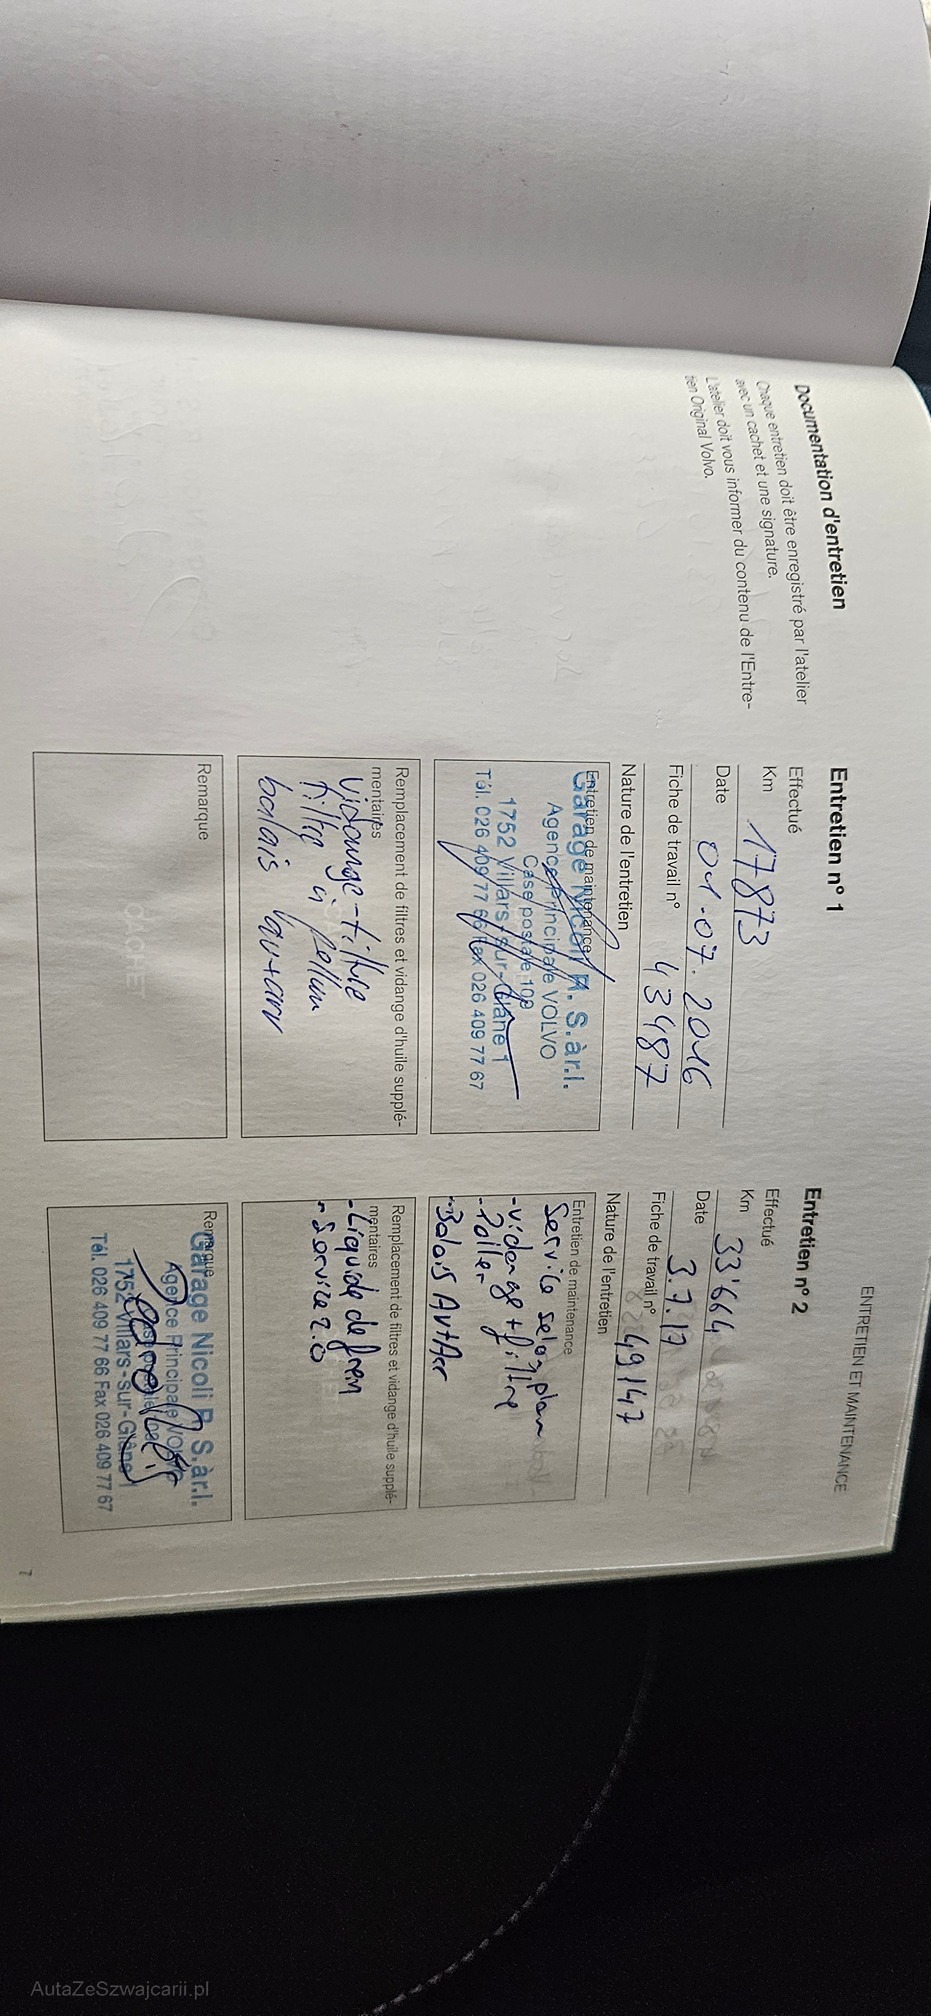 ENTRETIEN ET MAINTENANCE
Documentation d'entretien
Chaque entretien doit être enregistré par l'atelier
avec un cachet et une signature.
L'atelier doit vous informer du contenu de l'Entre-
tien Original Volvo.
Entretien n° 1
Effectué
Km 17873
Date 01.07.2016
Fiche de travail n° 43487
Nature de l'entretien
Entretien de maintenance
Garage Nicoli P. S.à.r.l.
Agence Principale VOLVO
Case postale 100
1752 Villars-sur-Glâne 1
Tél. 026 409 77 66 Fax 026 409 77 67
Remplacement de filtres et vidange d'huile supplé-
mentaires
Vidange-filtre
filtre à pollen
balais av+arr
Remarque
Entretien n° 2
Effectué
Km 33'664
Date 3.7.17
Fiche de travail n° 49147
Nature de l'entretien
Entretien de maintenance
Service selon plan
-vidange + filtre
-Pollen
-Balais Av+Arr
Remplacement de filtres et vidange d'huile supplé-
mentaires
-Liquide de frein
-Service 2.0
Remarque
Garage Nicoli P. S.à.r.l.
Agence Principale VOLVO
Case postale
1752 Villars-sur-Glâne 1
Tél. 026 409 77 66 Fax 026 409 77 67
7
AutaZeSzwajcarii.pl